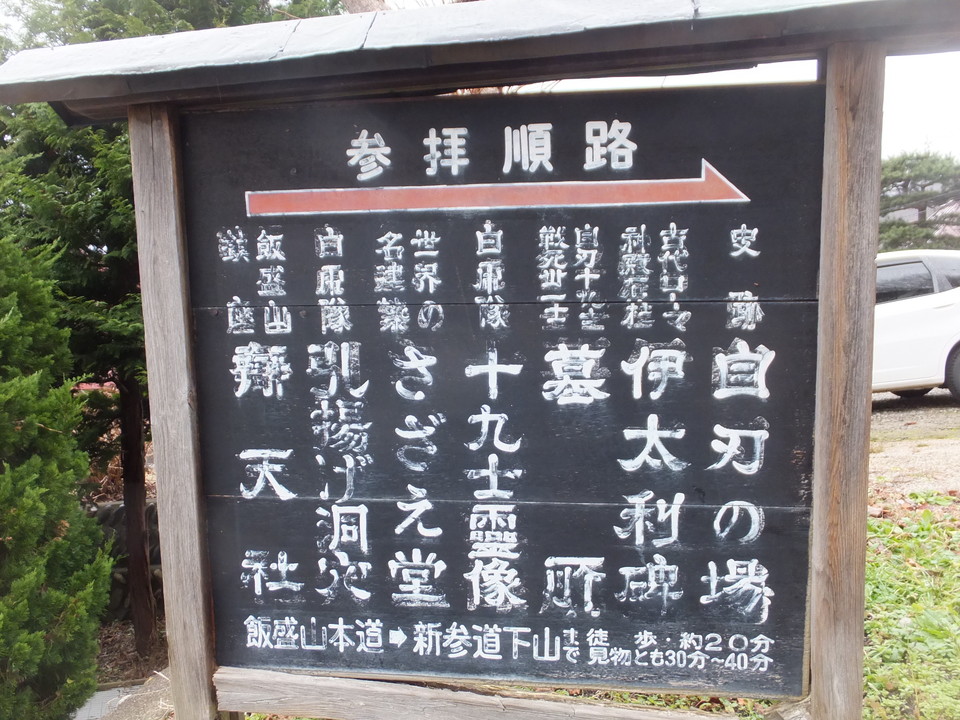 参拝順路
史跡
自刃の場
古代ローマ
神殿石柱
伊太利碑
自刃十九士
戦死卅一士
墓所
白虎隊
十九士靈像
世界の
名建築
さざえ堂
白虎隊
引揚げ洞穴
飯盛山
鎮座
辨天社
飯盛山本道➡新参道下山まで
徒歩・約20分
見物とも30分〜40分